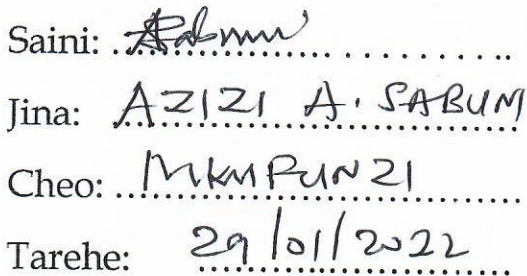 Saini:
Jina: AZIZI A. SABUNI
Cheo: MKUFUNZI
Tarehe: 29/01/2022